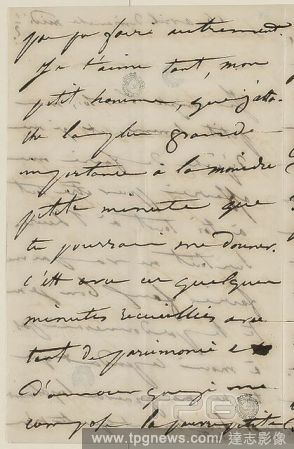 pas pu faire autrement.
Je t'aime tant, mon
petit homme, que j'atta-
che la plus grande
importance à la moindre
petite minute que
tu pourrais me donner.
C'est avec ces quelques
minutes recueillies avec
tant de parcimonie et
d'amour que je me
compose la pauvre petite
TPG
www.tpgnews.com/達志影像